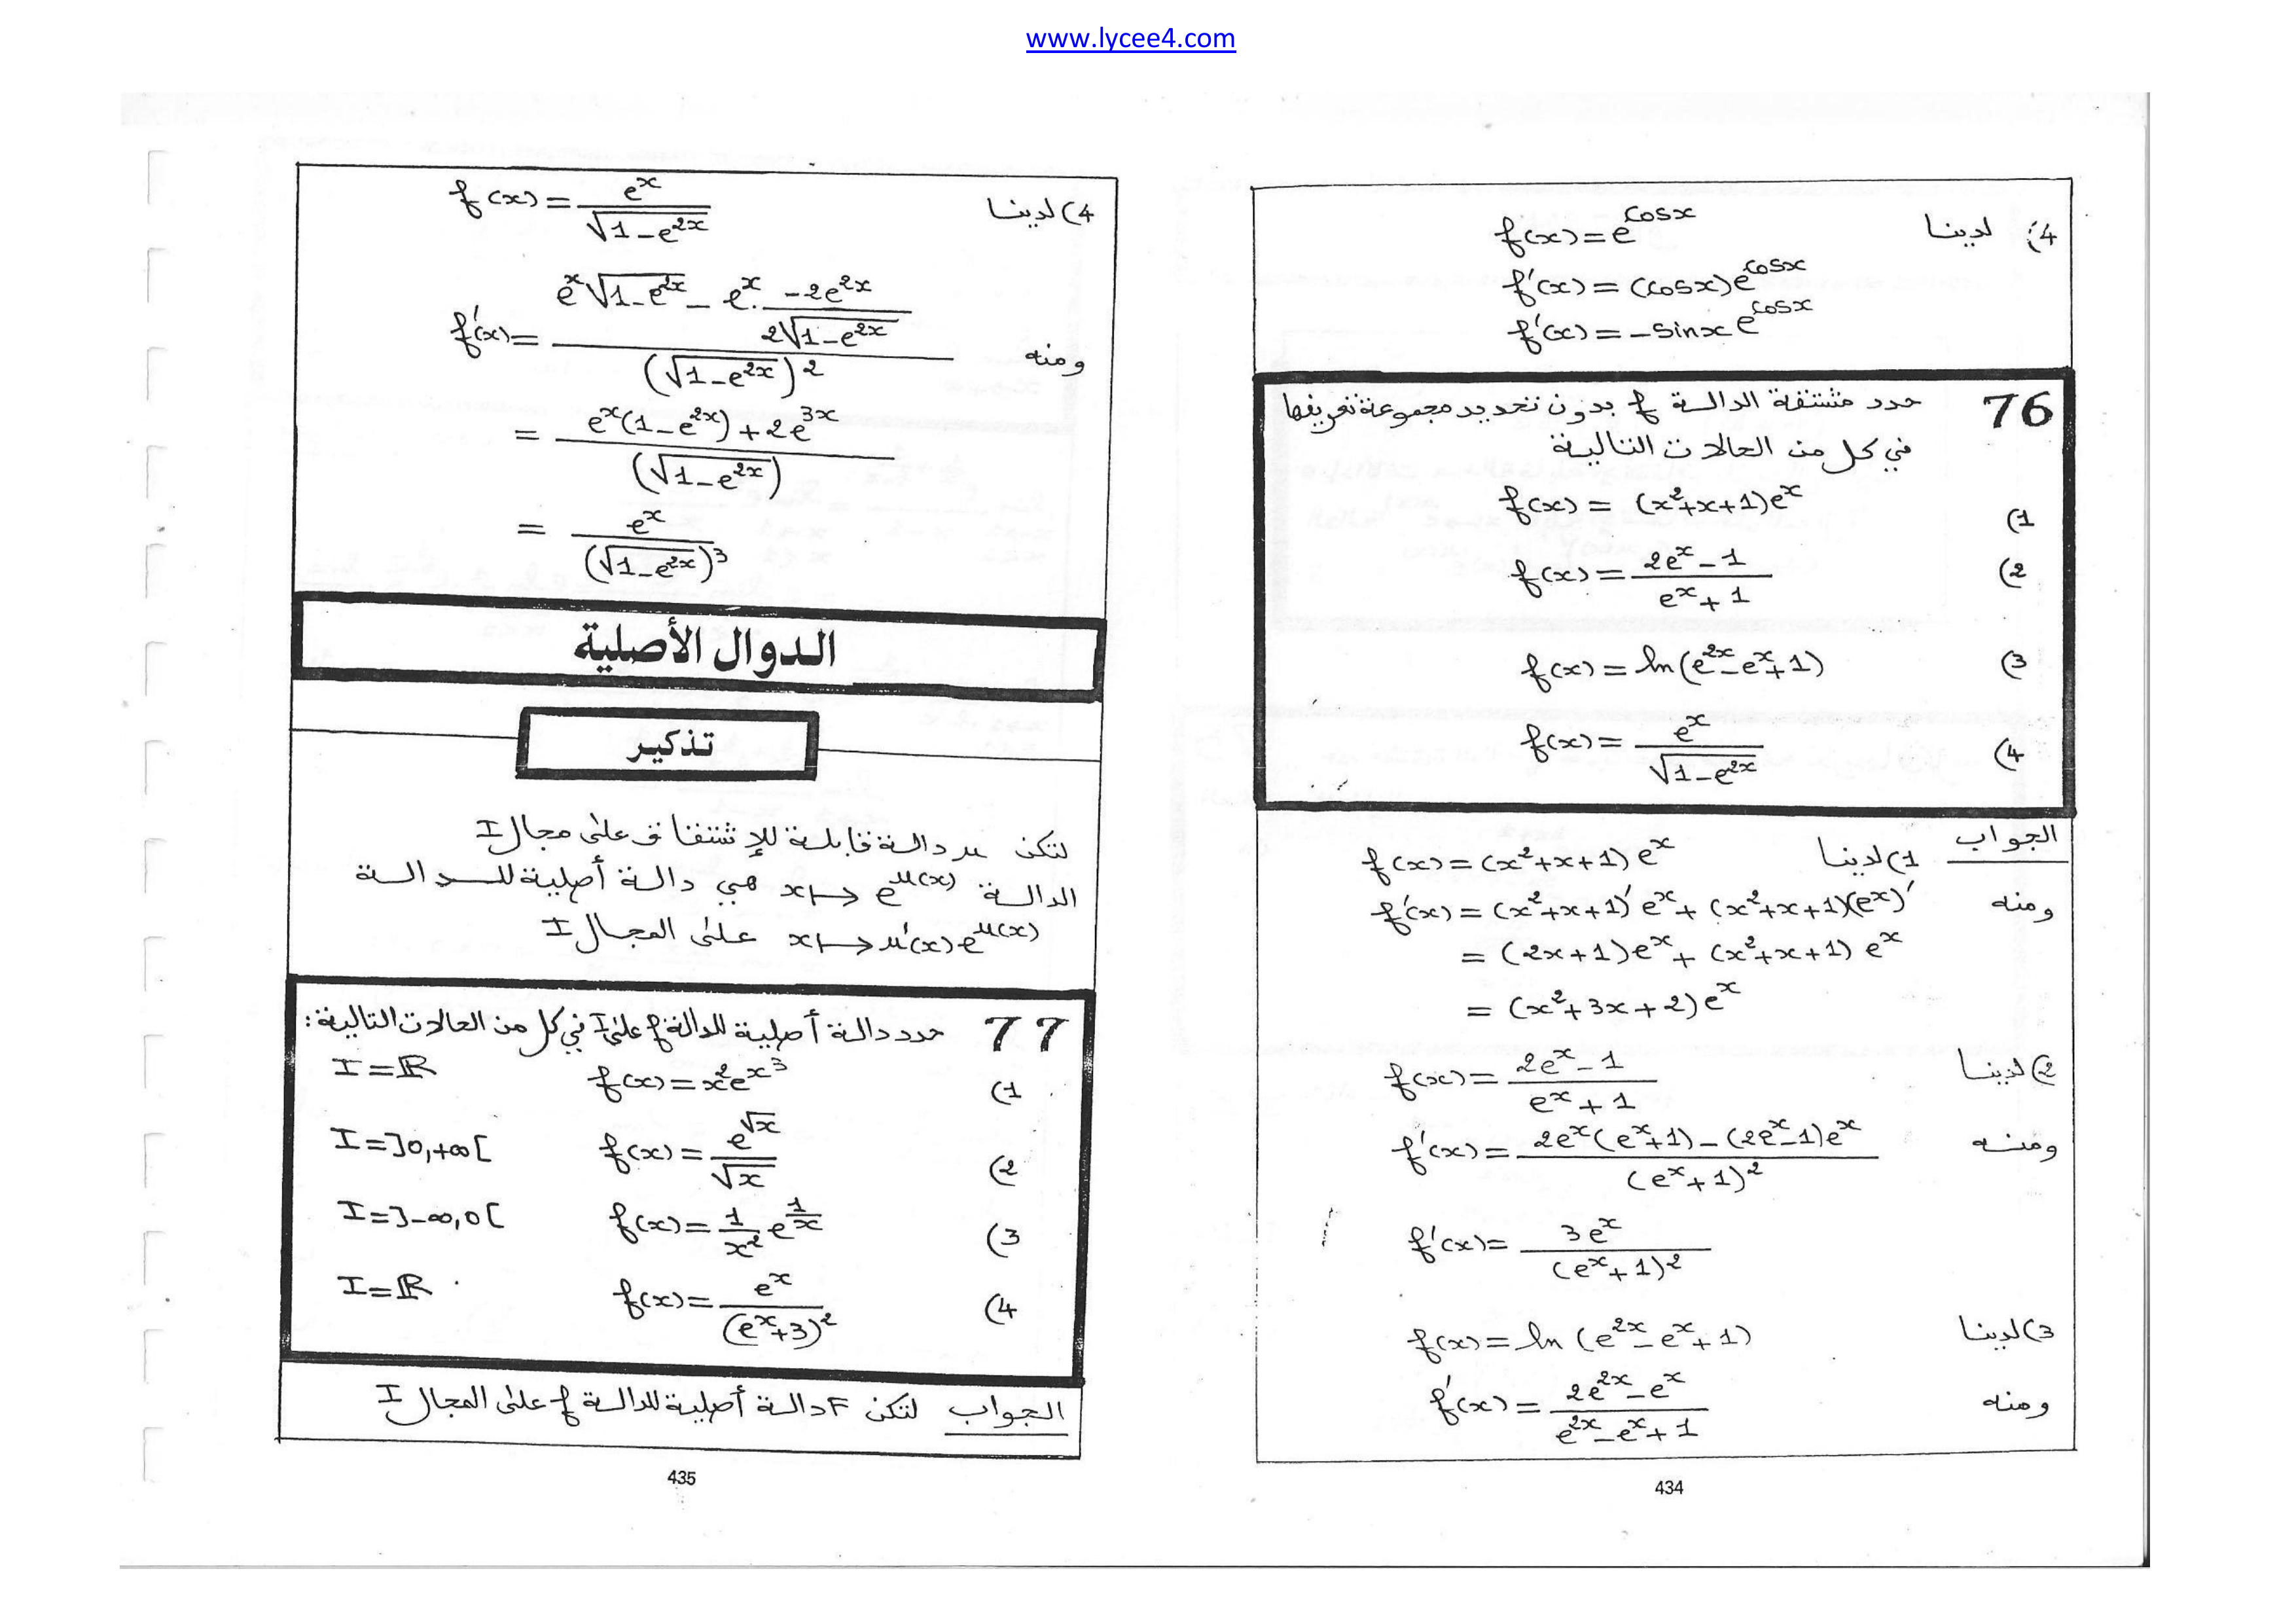 www.lycee4.com
4) لدينا f(x) = e^{cosx}
f'(x) = (cosx)e^{cosx}
f'(x) = -sinx e^{cosx}
76 حدد مشتقة الدالة f بدون تحديد مجموعة تعريفها
في كل من الحالات التالية
1) f(x) = (x²+x+1)e^x
2) f(x) = \frac{2e^x - 1}{e^x + 1}
3) f(x) = ln(e^{2x} - e^x + 1)
4) f(x) = \frac{e^x}{\sqrt{1-e^{2x}}}
الجواب 1) لدينا f(x) = (x²+x+1)e^x
ومنه f'(x) = (x²+x+1)'e^x + (x²+x+1)(e^x)'
= (2x+1)e^x + (x²+x+1)e^x
= (x²+3x+2)e^x
2) لدينا f(x) = \frac{2e^x - 1}{e^x + 1}
ومنه f'(x) = \frac{2e^x(e^x+1) - (2e^x-1)e^x}{(e^x+1)^2}
f'(x) = \frac{3e^x}{(e^x+1)^2}
3) لدينا f(x) = ln(e^{2x} - e^x + 1)
ومنه f'(x) = \frac{2e^{2x} - e^x}{e^{2x} - e^x + 1}
434
4) لدينا f(x) = \frac{e^x}{\sqrt{1-e^{2x}}}
ومنه f'(x) = \frac{e^x\sqrt{1-e^{2x}} - e^x . \frac{-2e^{2x}}{2\sqrt{1-e^{2x}}}}{(\sqrt{1-e^{2x}})^2}
= \frac{e^x(1-e^{2x}) + 2e^{3x}}{(\sqrt{1-e^{2x}})}
= \frac{e^x}{(\sqrt{1-e^{2x}})^3}
الدوال الأصلية
تذكير
لتكن u دالة قابلة للإشتقاق على مجال I
الدالة x ↦ e^{u(x)} هي دالة أصلية للدالة
x ↦ u'(x)e^{u(x)} على المجال I
77 حدد دالة أصلية للدالة f على I في كل من الحالات التالية:
1) f(x) = x²e^{x³} I = ℝ
2) f(x) = \frac{e^{\sqrt{x}}}{\sqrt{x}} I = ]0,+∞[
3) f(x) = \frac{1}{x²} e^{\frac{1}{x}} I = ]-∞,0[
4) f(x) = \frac{e^x}{(e^x+3)^2} I = ℝ
الجواب لتكن F دالة أصلية للدالة f على المجال I
435